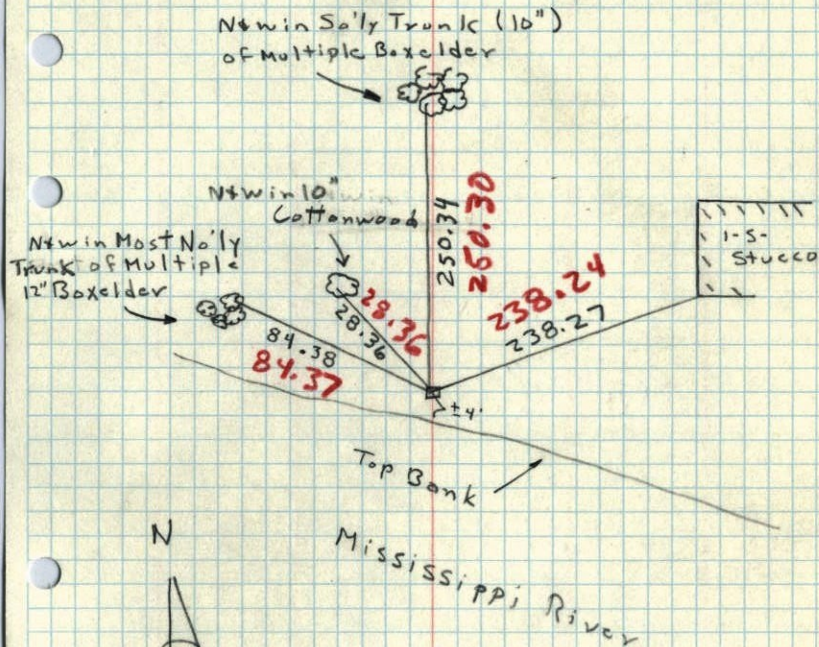 N&W in So'ly Trunk (10")
of Multiple Boxelder
N&W in 10"
Cottonwood
N&W in Most No'ly
Trunk of Multiple
12" Boxelder
250.34
250.30
1-S-
Stucco
28.36
28.36
238.24
238.27
84.38
84.37
±4'
Top Bank
Mississippi River
N